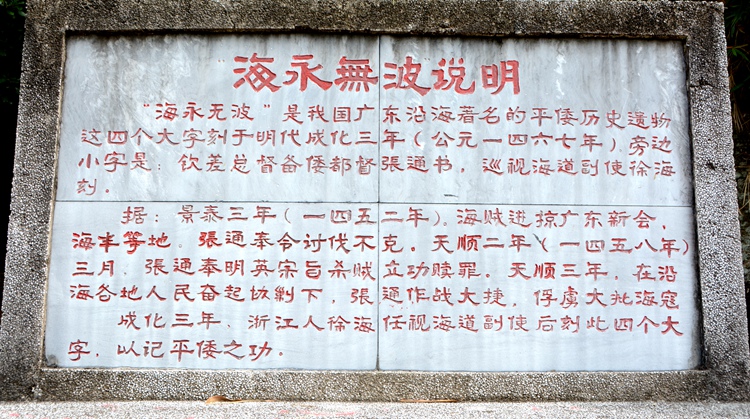 "海永無波"说明
"海永无波"是我国广东沿海著名的平倭历史遗物
这四个大字刻于明代成化三年(公元一四六七年)旁边
小字是:钦差总督备倭都督張通书,巡视海道副使徐海
刻.
据:景泰三年(一四五二年).海贼进掠广东新会,
海丰等地.張通奉令讨伐不克.天顺二年(一四五八年)
三月、張通奉明英宗旨杀贼立功赎罪.天顺三年,在沿
海各地人民奋起协剿下,張通作战大捷,俘虏大批海寇
成化三年、浙江人徐海任视海道副使后刻此四个大
字,以记平倭之功.